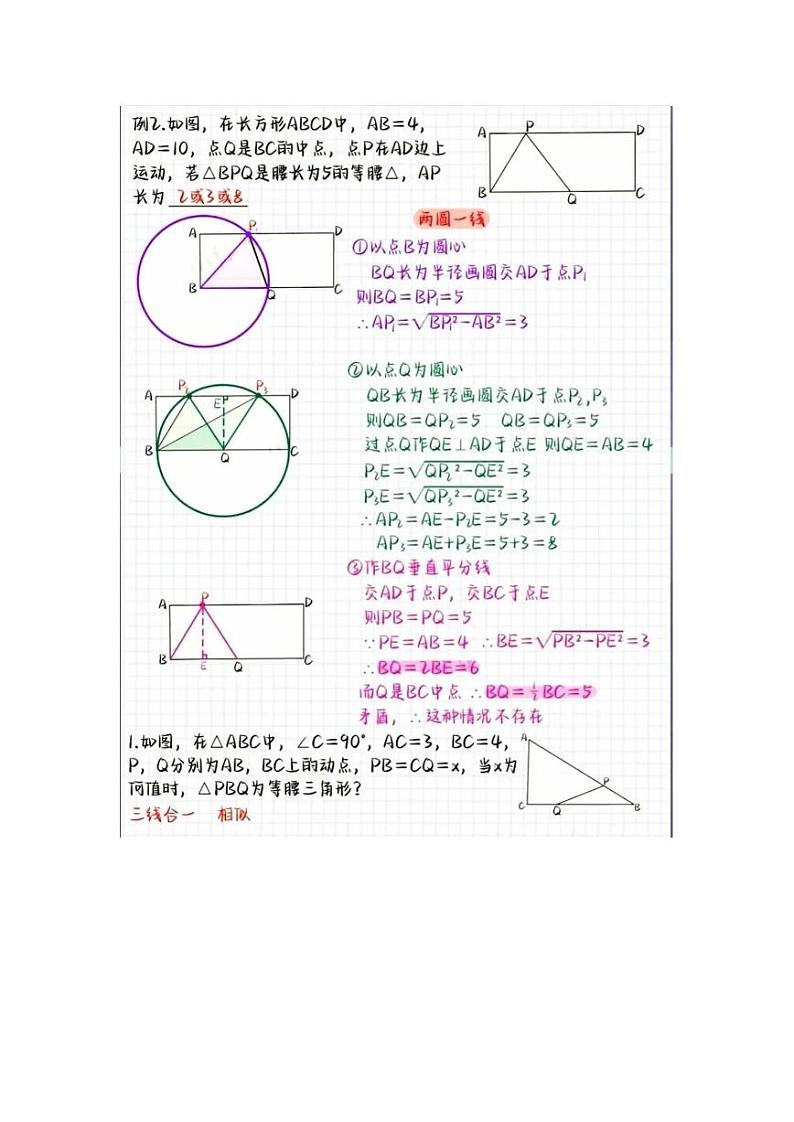 例2.如图，在长方形ABCD中，AB=4，
AD=10，点Q是BC的中点，点P在AD边上
运动，若△BPQ是腰长为5的等腰△，AP
长为 2或3或8
A P D
B Q C
两圆一线
A P₁ D
B Q C
①以点B为圆心
BQ长为半径画圆交AD于点P₁
则BQ=BP₁=5
∴AP₁=√BP₁²-AB²=3
A P₂ E P₃ D
B Q C
②以点Q为圆心
QB长为半径画圆交AD于点P₂,P₃
则QB=QP₂=5 QB=QP₃=5
过点Q作QE⊥AD于点E 则QE=AB=4
P₂E=√QP₂²-QE²=3
P₃E=√QP₃²-QE²=3
∴AP₂=AE-P₂E=5-3=2
AP₃=AE+P₃E=5+3=8
A P D
B E Q C
③作BQ垂直平分线
交AD于点P，交BC于点E
则PB=PQ=5
∵PE=AB=4 ∴BE=√PB²-PE²=3
∴BQ=2BE=6
而Q是BC中点 ∴BQ=½BC=5
矛盾，∴这种情况不存在
1.如图，在△ABC中，∠C=90°，AC=3，BC=4，
P，Q分别为AB，BC上的动点，PB=CQ=x，当x为
何值时，△PBQ为等腰三角形？
三线合一 相似
A
P
C Q B